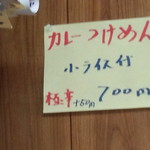 カレーつけめん
小ライス付
極辛+50円 700円